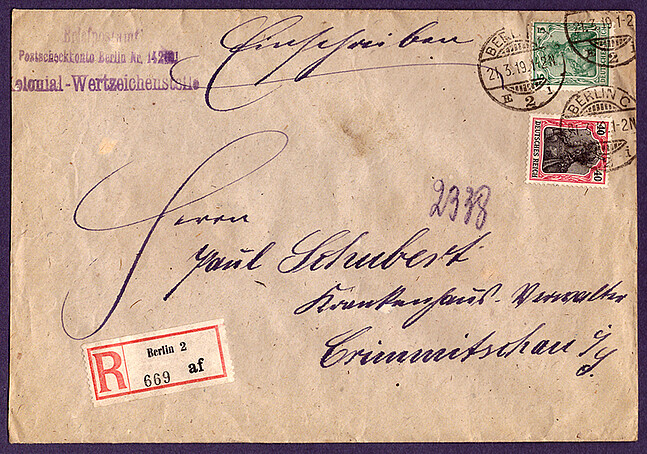 Briefpostamt
Postscheckkonto Berlin Nr. 142
Kolonial-Wertzeichenstelle
Einschreiben
BERLIN C
21.3.19.1-2N
2
DEUTSCHES REICH
40
40
2338
Herrn
Paul Schubert
Krankenhaus-Verwalter
Crimmitschau i/S
R
Berlin 2
669 af